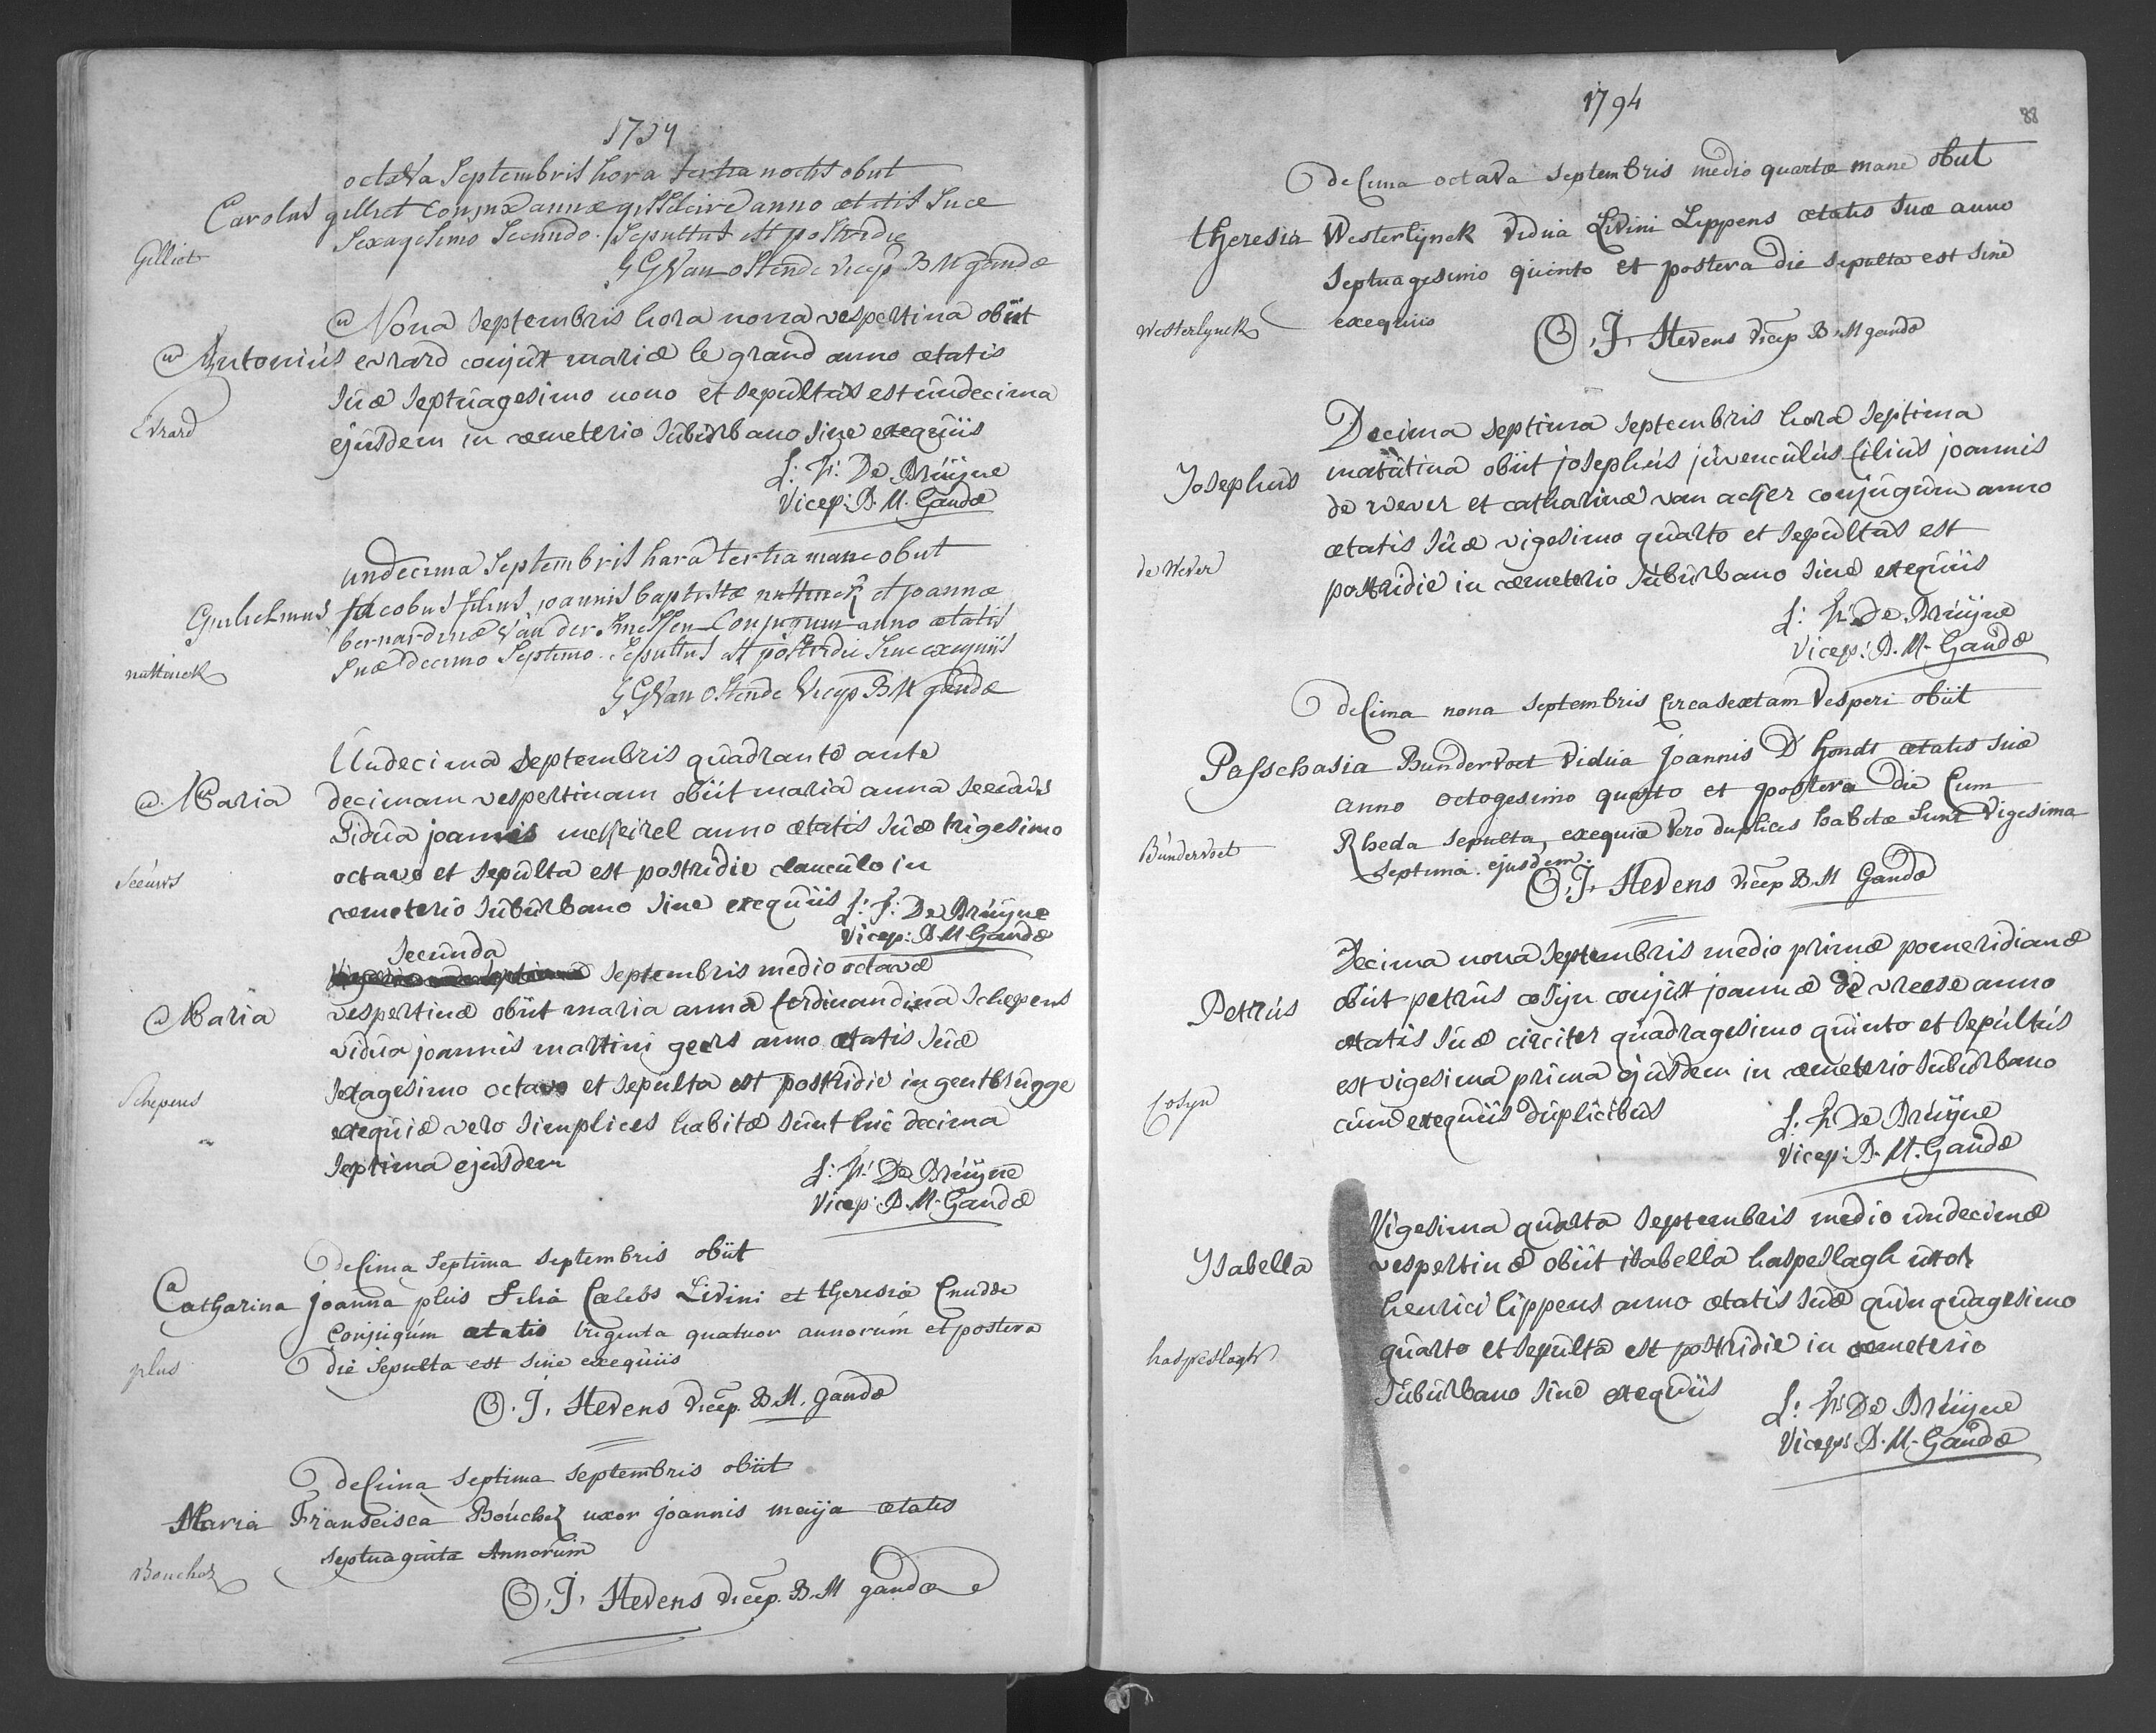 1794
octava Septembris hora tertia noctis obiit
Carolus gilliet Conjux annæ anno ætatis Suæ
Sexagesimo Secundo. Sepultus est postridie
Gilliet
G G Van Ostende vicep B M gandæ
Nona Septembris hora nona vespertina obiit
Antonius evrard conjux mariæ le grand anno ætatis
Suæ Septuagesimo nono et Sepultus est undecima
Evrard
ejusdem in cæmeterio Suburbano Sine exequiis
De Bruÿne
Vicep: B. M. Gandæ
undecima Septembris hora tertia mane obiit
Gulielmus Jacobus filius joannis baptistæ nuttinck et joannæ
bernardinæ Van der Smessen Conjugum anno ætatis
Suæ decimo Septimo. Sepultus est postridie Sine exequiis
nuttinck
G G Van Ostende Vicep B M gandæ
Undecima Septembris quadrante ante
Maria decimam vespertinam obiit maria anna Seeuws
Vidua joannis anno ætatis Suæ trigesimo
Seeuws
octavo et Sepulta est postridie clanculo in
cæmeterio Suburbano Sine exequiis De Bruÿne
Vicep: B. M. Gandæ
Secunda
Septembris medio octavæ
Maria vespertinæ obiit maria anna ferdinandina Schepens
vidua joannis martini geers anno ætatis Suæ
Sexagesimo octavo et Sepulta est postridie in gentbrugge
Schepens
exequiæ vero Simplices habitæ Sunt hic decima
Septima ejusdem
De Bruÿne
Vicep: B. M. Gandæ
decima Septima Septembris obiit
Catharina joanna plus Filia Cælebs Livini et theresiæ Cnudde
Conjugum ætatis triginta quatuor annorum et postera
plus
die Sepulta est Sine exequiis
J. Stevens vicep. B. M. gandæ
decima Septima Septembris obiit
Maria Franscisca Bouchez uxor joannis maÿa ætatis
Septuaginta Annorum
Bouchez
J. Stevens vicep. B. M gandæ
1794
88
decima octava Septembris medio quartæ mane obiit
theresia Westerlÿnck Vidua Livini Lippens ætatis Suæ anno
Septuagesimo quinto et postera die Sepulta est Sine
Westerlynck
exequiis
J. Stevens vicep B M gandæ
Decima Septima Septembris hora Septima
Josephus matutina obiit josephus juvenculus filius joannis
de wever et catharinæ van acker conjugum anno
ætatis Suæ vigesimo quarto et Sepultus est
de Wever
postridie in cæmeterio Suburbano Sine exequiis
De Bruÿne
Vicep: B. M. Gandæ
decima nona Septembris Circa Sextam Vesperi obiit
Passchasia Bundervoet Vidua joannis D'hondt ætatis Suæ
anno octogesimo quarto et postera die Cum
Bundervoet
Rheda Sepulta, exequiæ Vero duplices habitæ Sunt Vigesima
Septima ejusdem.
J. Stevens vicep B. M Gandæ
Decima nona Septembris medio primæ pomeridianæ
Petrus obiit petrus cosÿn conjux joannæ de vreese anno
ætatis Suæ circiter quadragesimo quinto et Sepultus
est vigesima prima ejusdem in cæmeterio Suburbano
Cosyn
cum exequiis duplicibus
De Bruÿne
Vicep: B. M. Gandæ
Vigesima quarta Septembris medio undecimæ
Ysabella vespertinæ obiit isabella haspeslagh uxor
henrici lippens anno ætatis Suæ quinquagesimo
haspeslagh
quarto et Sepulta est postridie in cæmeterio
Suburbano Sine exequiis
De Bruÿne
Vicep: B. M. Gandæ